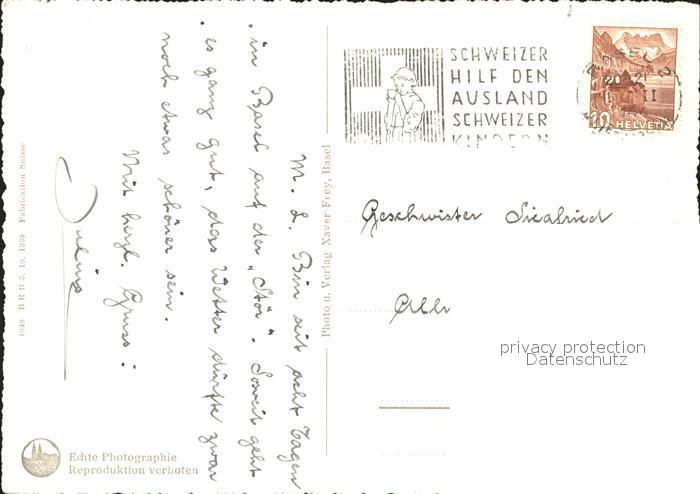 SCHWEIZER
HILF DEN
AUSLAND
SCHWEIZER
KINDERN
10 HELVETIA
M. L. Bin seit acht Tagen
in Basel auf der „Stör“. Soweit geht
es ganz gut, das Wetter dürfte zwar
noch etwas schöner sein.
Mit herzl. Gruss:
Julius
Geschwister Siegfried
privacy protection
Datenschutz
Photo u. Verlag Xaver Frey, Basel
1048 B R B 3. 10. 1939 Fabrication Suisse
Echte Photographie
Reproduktion verboten